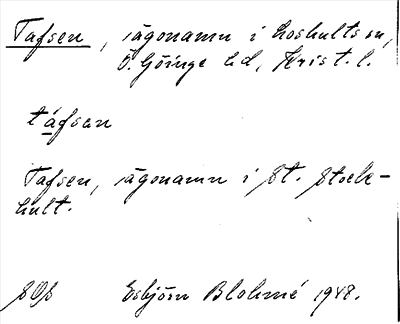 Tafsen, ägonamn i Loshults sn,
Ö. Göinge hd, Krist. l.
táfsen
Tafsen, ägonamn i St. Stock-
hult.
Esbjörn Blohmé 1948.